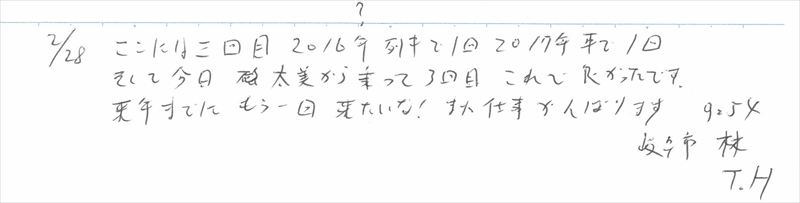 ?
2/28 ここには三回目 2016年 列車で1回 2017年 車で1回
そして今日 越美から乗って3回目 これで良かったです。
来年までに もう一回 来たいな! また仕事がんばります 9:54
岐阜市 林
T.H